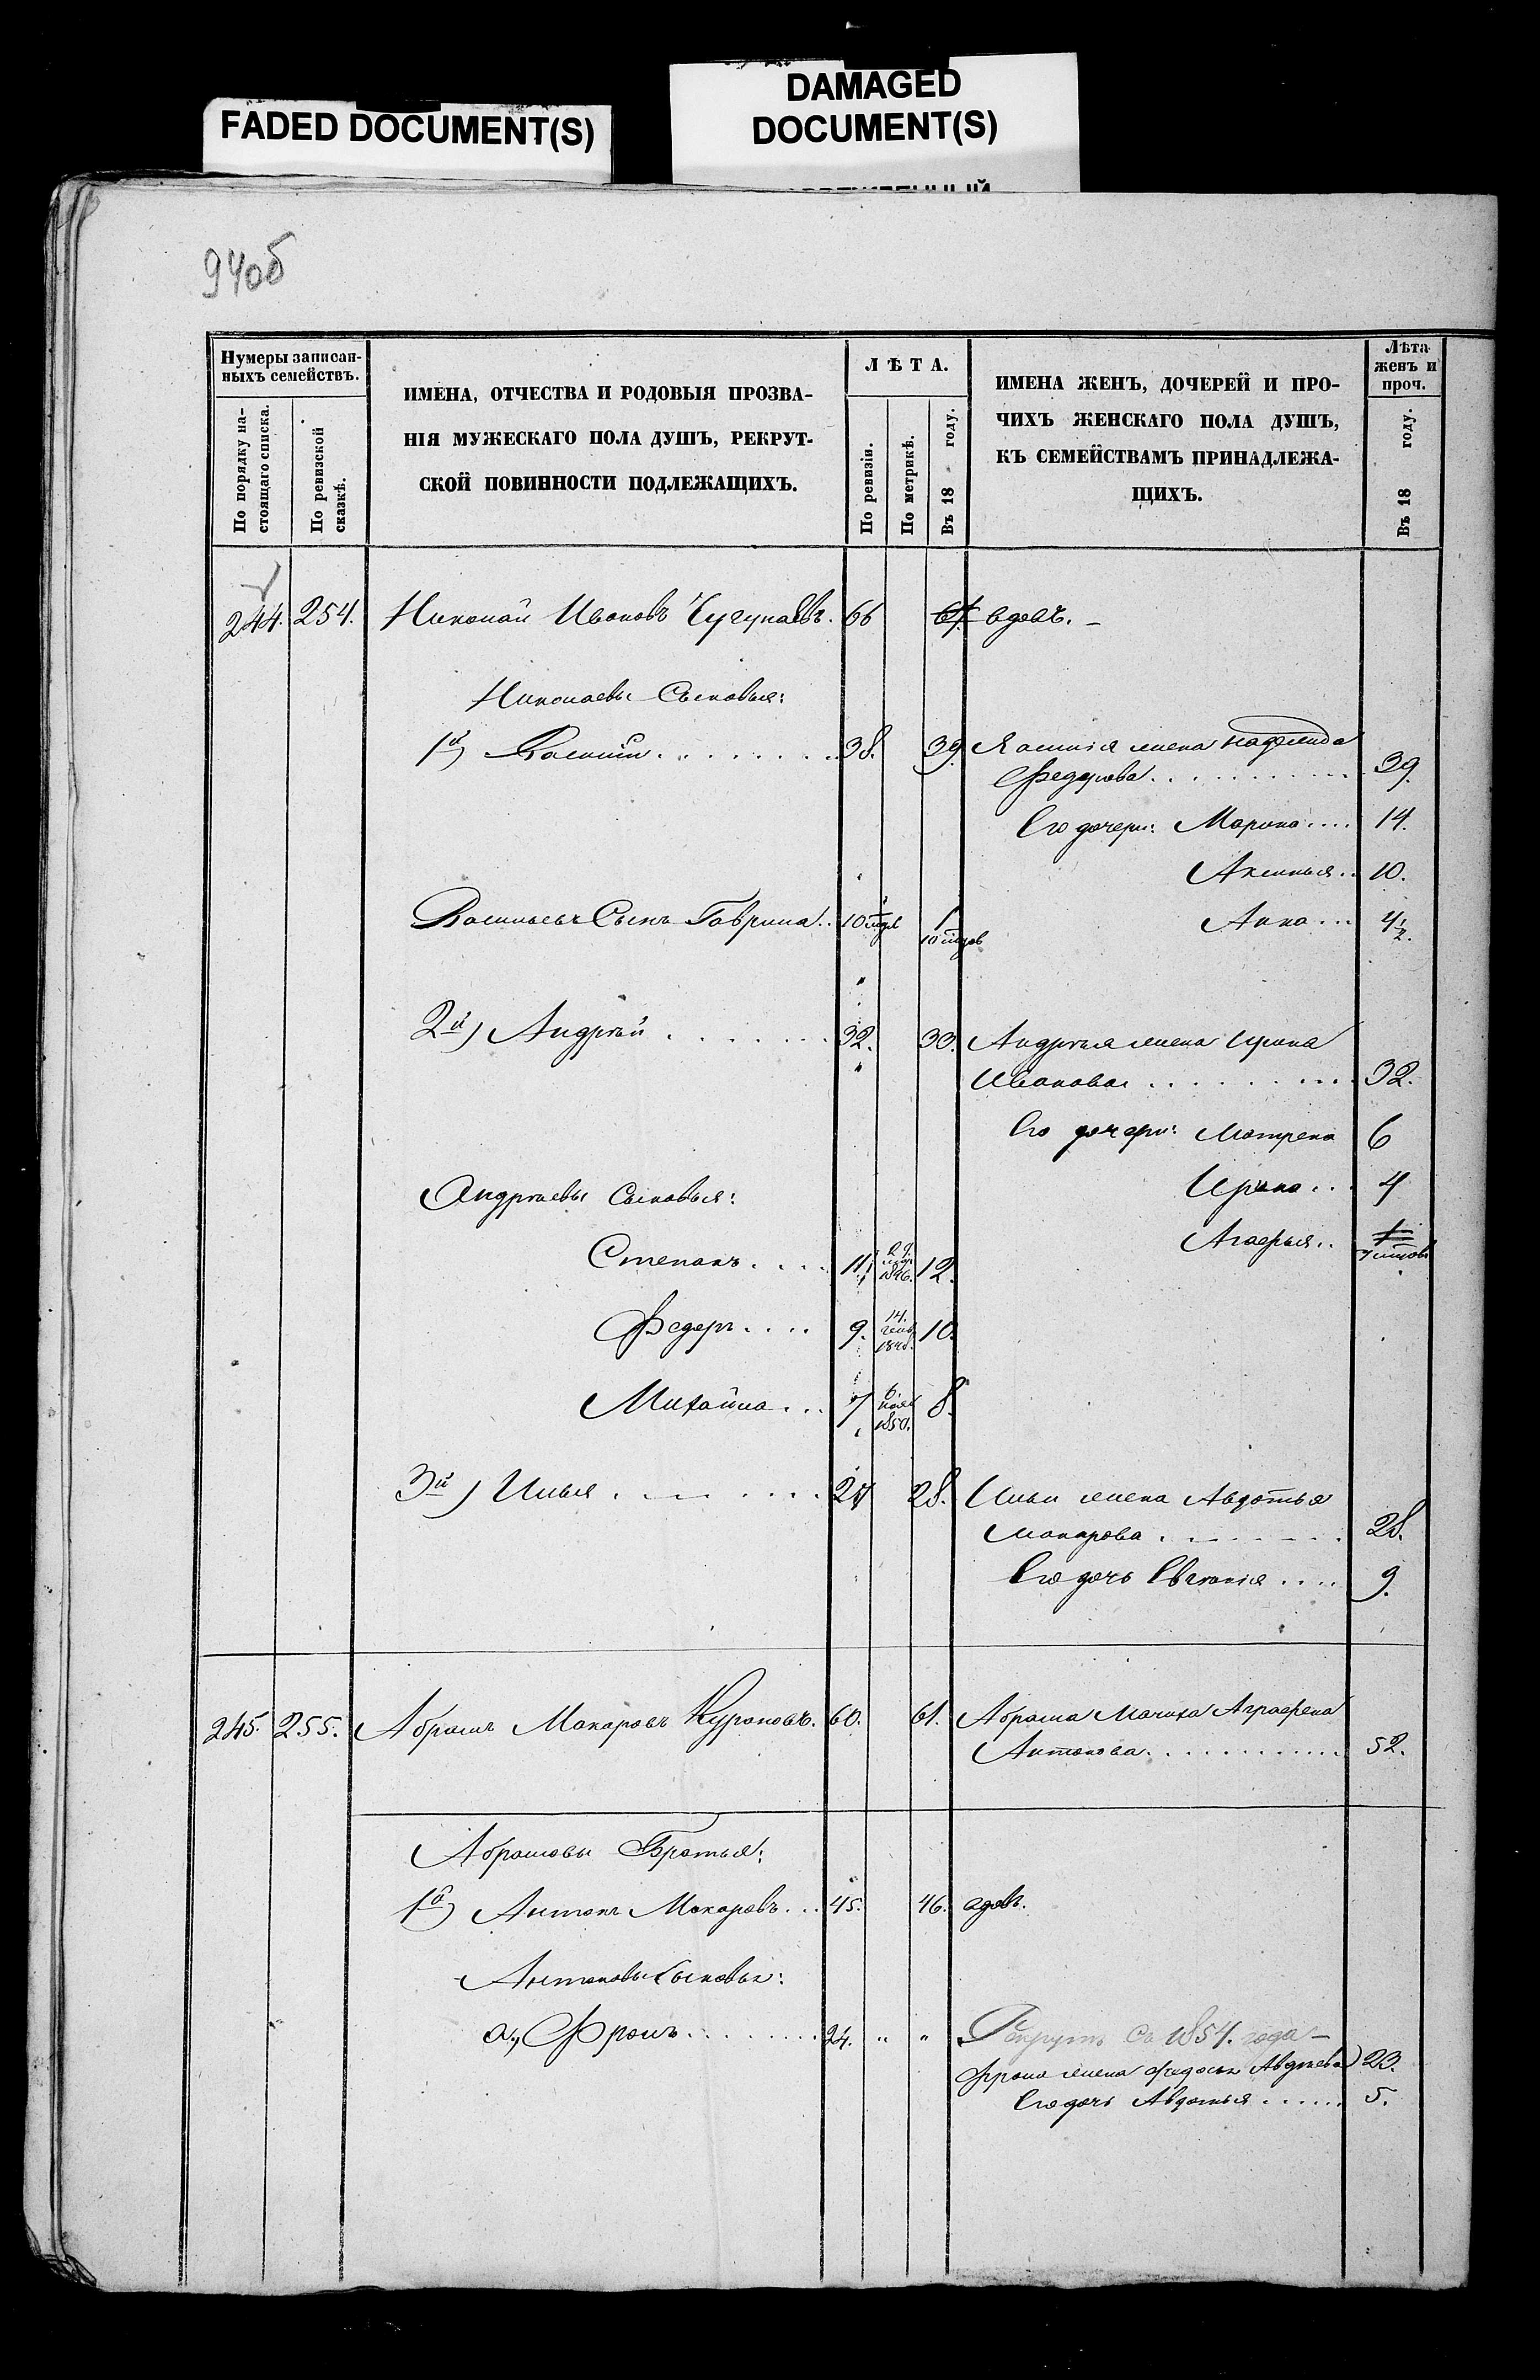 FADED DOCUMENT(S)
DAMAGED
DOCUMENT(S)
94об
Нумеры записан-
ныхъ семействъ.
По порядку на-
стоящаго списка.
По ревизской
сказкѣ.
ИМЕНА, ОТЧЕСТВА И РОДОВЫЯ ПРОЗВА-
НІЯ МУЖЕСКАГО ПОЛА ДУШЪ, РЕКРУТ-
СКОЙ ПОВИННОСТИ ПОДЛЕЖАЩИХЪ.
ЛѢТА.
По ревизіи.
По метрикѣ.
Въ 18 году.
ИМЕНА ЖЕНЪ, ДОЧЕРЕЙ И ПРО-
ЧИХЪ ЖЕНСКАГО ПОЛА ДУШЪ,
КЪ СЕМЕЙСТВАМЪ ПРИНАДЛЕЖА-
ЩИХЪ.
Лѣта
женъ и
проч.
Въ 18 году.
244. 254. Николай Ивановъ Чугуновъ. 66 67 вдовъ.
Николаевы Сыновья:
1й) Василій 38. 39. Василія жена Надежда
Федорова 39.
Его дочери: Марина 14.
Аксинья 10.
Васильевъ Сынъ Гаврила 10 мцв 1 10 мцов Анна 4½.
2й) Андрѣй 32. 33. Андрѣя жена Ирина
Иванова 32.
Его дочери: Матрена 6
Андрѣевы Сыновья: Ирина 4
Агафья
Степанъ 11 1846. 12.
Федоръ 9. 14. генв. 1848. 10.
Михайла 7 6. нояб 1850. 8.
3й) Илья 27 28. Ильи жена Авдотья
Макарова 28.
Его дочь Евгенія 9.
245. 255. Абрамъ Макаровъ 60. 61. Абрама Мачиха Аграфена
Антонова 52.
Абрамовы Братья:
1й) Антонъ Макаровъ 45. 46. вдовъ.
Антоновы Сыновья:
а., Фролъ 24. " " Рекрутъ съ 1854. года
Фрола жена Федосья Авдѣева 23.
Его дочь Авдотья 5.